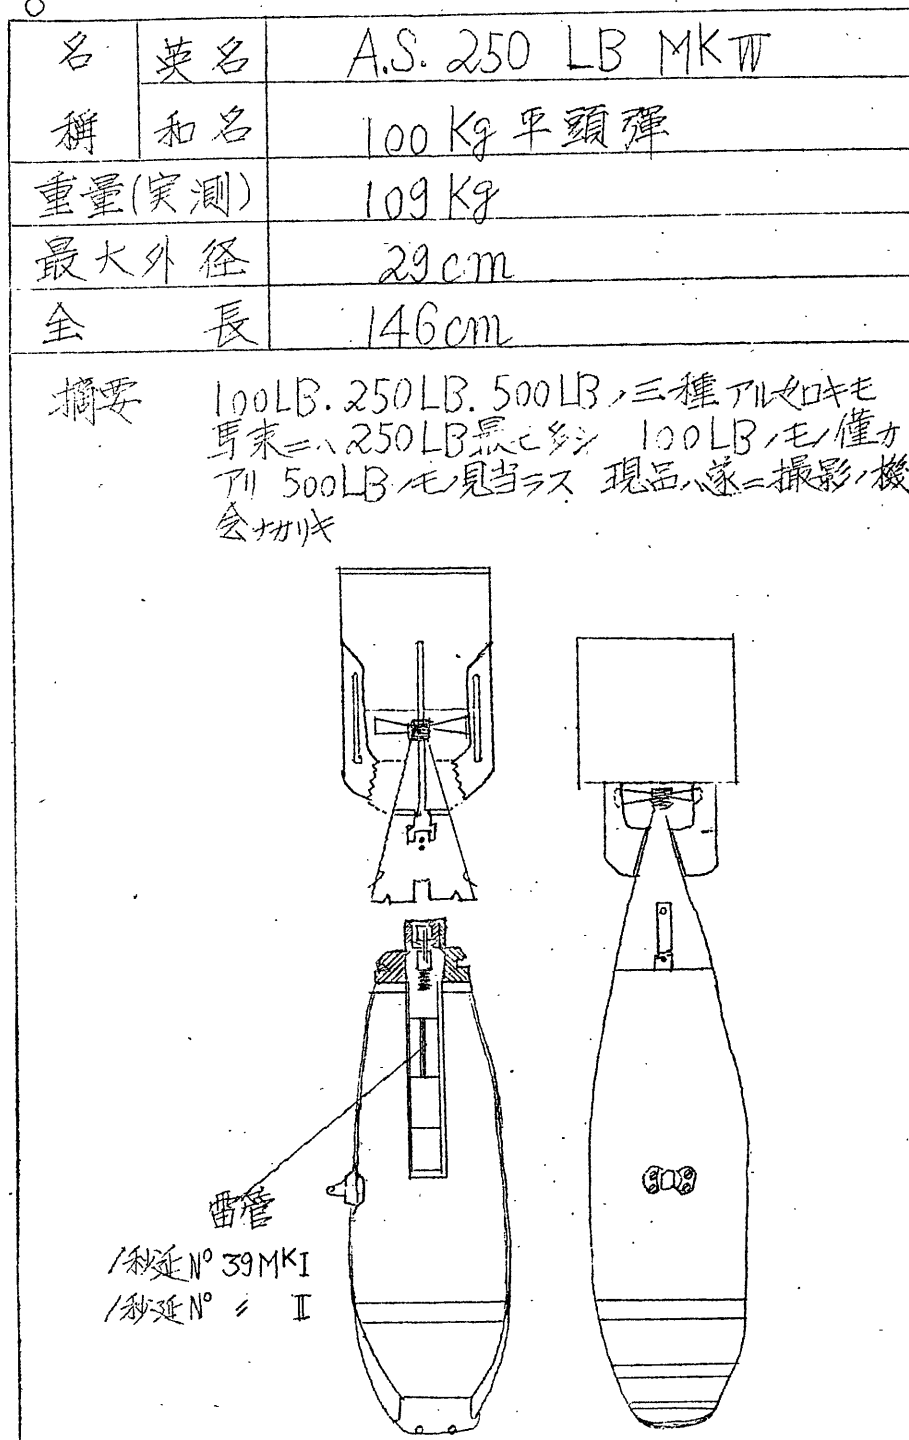 名稱 英名 A.S. 250 LB MK IV
和名 100 Kg 平頭彈
重量(実測) 109 Kg
最大外径 29 cm
全長 146 cm
摘要 100LB. 250LB. 500LB ノ三種アル如キモ
馬来ニハ 250LB 最モ多シ 100LB ノモノ僅カ
アリ 500LB ノモノ見当ラス 現品ハ遂ニ撮影ノ機
会ナカリキ
雷管
1秒延 Nº 39 MK I
1秒延 Nº 〃 II